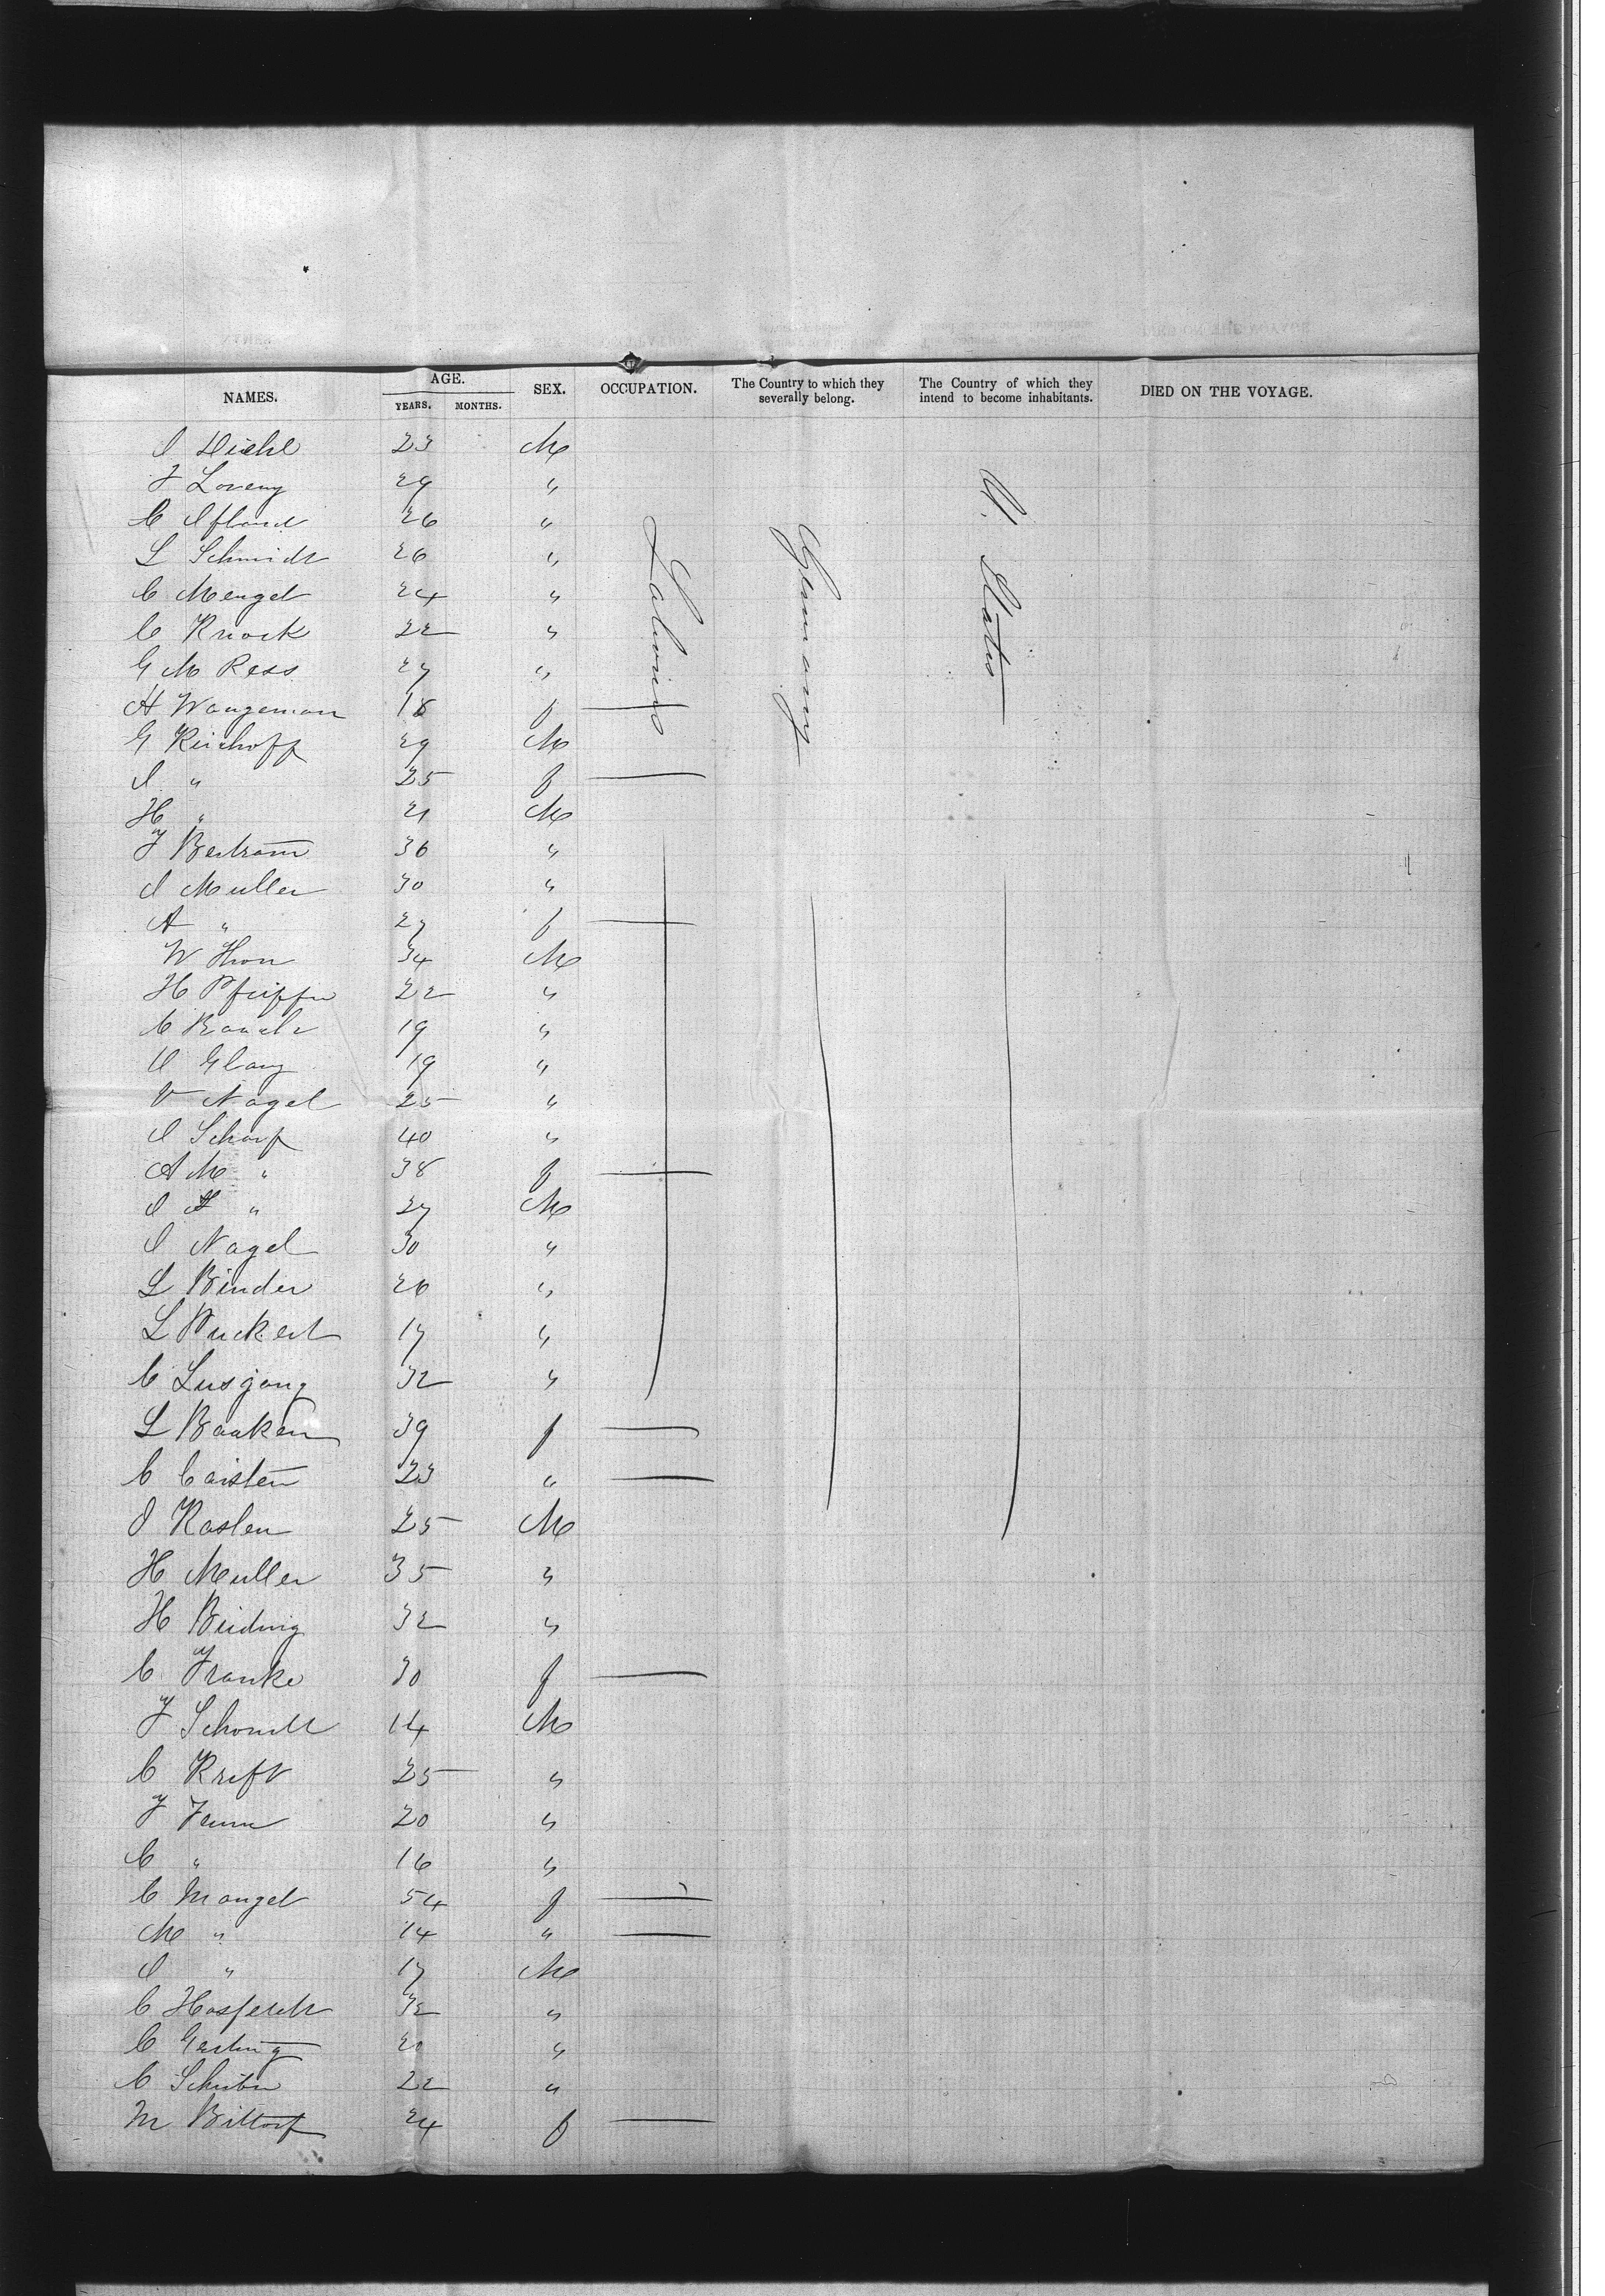 NAMES. AGE. SEX. OCCUPATION. The Country to which they severally belong. The Country of which they intend to become inhabitants. DIED ON THE VOYAGE.
YEARS. MONTHS.
Laborers
Germany
U. States
I Diehl 23 M
F Lorenz 29 "
C Ifland 26 "
L Schmidt 26 "
C Mengel 24 "
C Knock 22 "
G M Ress 27 "
H Wangeman 18 f —
G Kirchoff 29 M
I " 25 f —
H " 21 M
F Bertram 36 "
I Muller 30 "
A " 27 f —
W Thon 34 M
H Pfeiffer 22 "
C 19 "
Glanz 19 "
V Nagel 25 "
I Scharf 40 "
A M " 38 f —
I " 27 M
I Nagel 30 "
L Binder 26 "
L Puckert 17 "
C Lusgang 32 "
L Baaken 39 f —
C Carsten 23 " —
I Kaslen 25 M
H Muller 35 "
H 32 "
C Franke 30 f —
F 14 M
C Kreft 25 "
F 20 "
C " 16 "
C Mangel 54 f —
M " 14 " —
I " 17 M
C 32 "
C Gerting 20 "
C 22 "
M Bittorf 24 f —